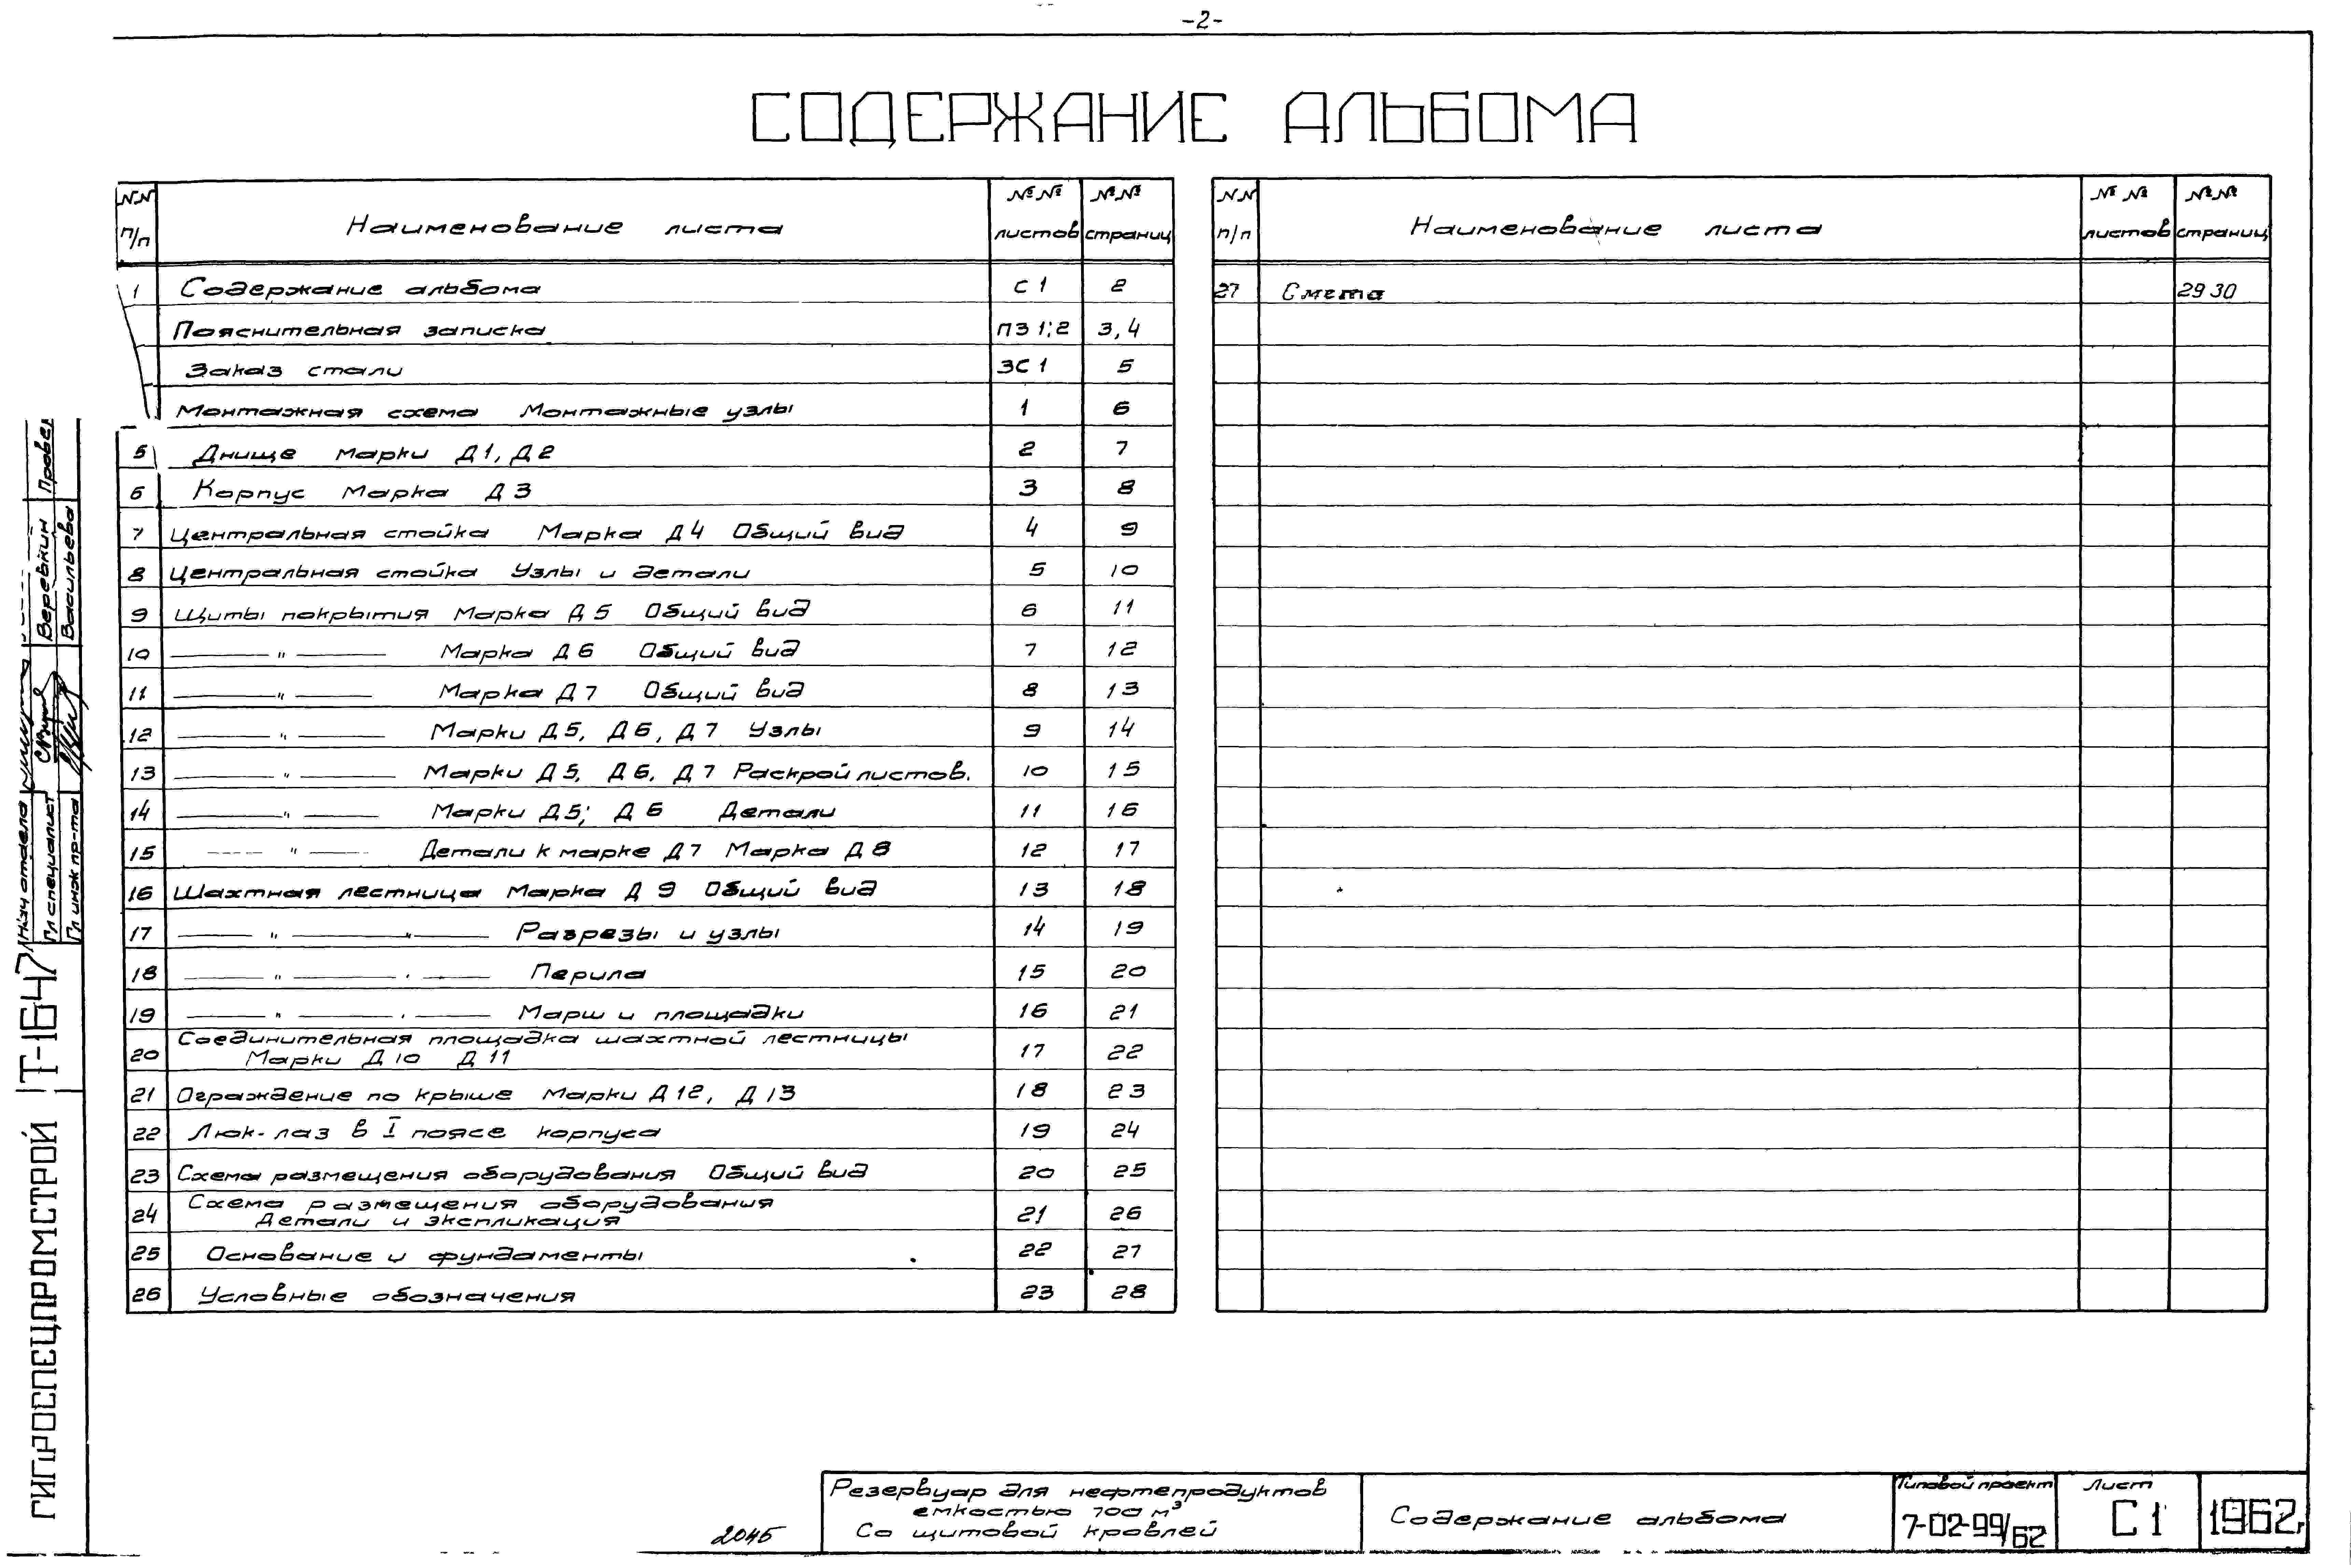 -2-
СОДЕРЖАНИЕ АЛЬБОМА
N.N п/п Наименование листа №№ листов №№ страниц
1 Содержание альбома С 1 2
Пояснительная записка ПЗ 1; 2 3, 4
Заказ стали ЗС 1 5
Монтажная схема Монтажные узлы 1 6
5 Днище Марки Д1, Д2 2 7
6 Корпус Марка Д3 3 8
7 Центральная стойка Марка Д4 Общий вид 4 9
8 Центральная стойка Узлы и детали 5 10
9 Щиты покрытия Марка Д5 Общий вид 6 11
10 — " — Марка Д6 Общий вид 7 12
11 — " — Марка Д7 Общий вид 8 13
12 — " — Марки Д5, Д6, Д7 Узлы 9 14
13 — " — Марки Д5, Д6, Д7 Раскрой листов. 10 15
14 — " — Марки Д5; Д6 Детали 11 16
15 — " — Детали к марке Д7 Марка Д8 12 17
16 Шахтная лестница Марка Д9 Общий вид 13 18
17 — " — " — Разрезы и узлы 14 19
18 — " — " — Перила 15 20
19 — " — " — Марш и площадки 16 21
20 Соединительная площадка шахтной лестницы
Марки Д10 Д11 17 22
21 Ограждение по крыше Марки Д12, Д13 18 23
22 Люк-лаз в I поясе корпуса 19 24
23 Схема размещения оборудования Общий вид 20 25
24 Схема размещения оборудования
Детали и экспликация 21 26
25 Основание и фундаменты 22 27
26 Условные обозначения 23 28
N.N п/п Наименование листа №№ листов №№ страниц
27 Смета 29 30
Нач отдела
Гл специалист Верёвкин Провер
Гл инж пр-та Васильева
Т-1647
ГИПРОСПЕЦПРОМСТРОЙ
2045
Резервуар для нефтепродуктов
емкостью 700 м³
Со щитовой кровлей
Содержание альбома
Типовой проект
7-02-99/62
Лист
С 1
1962г